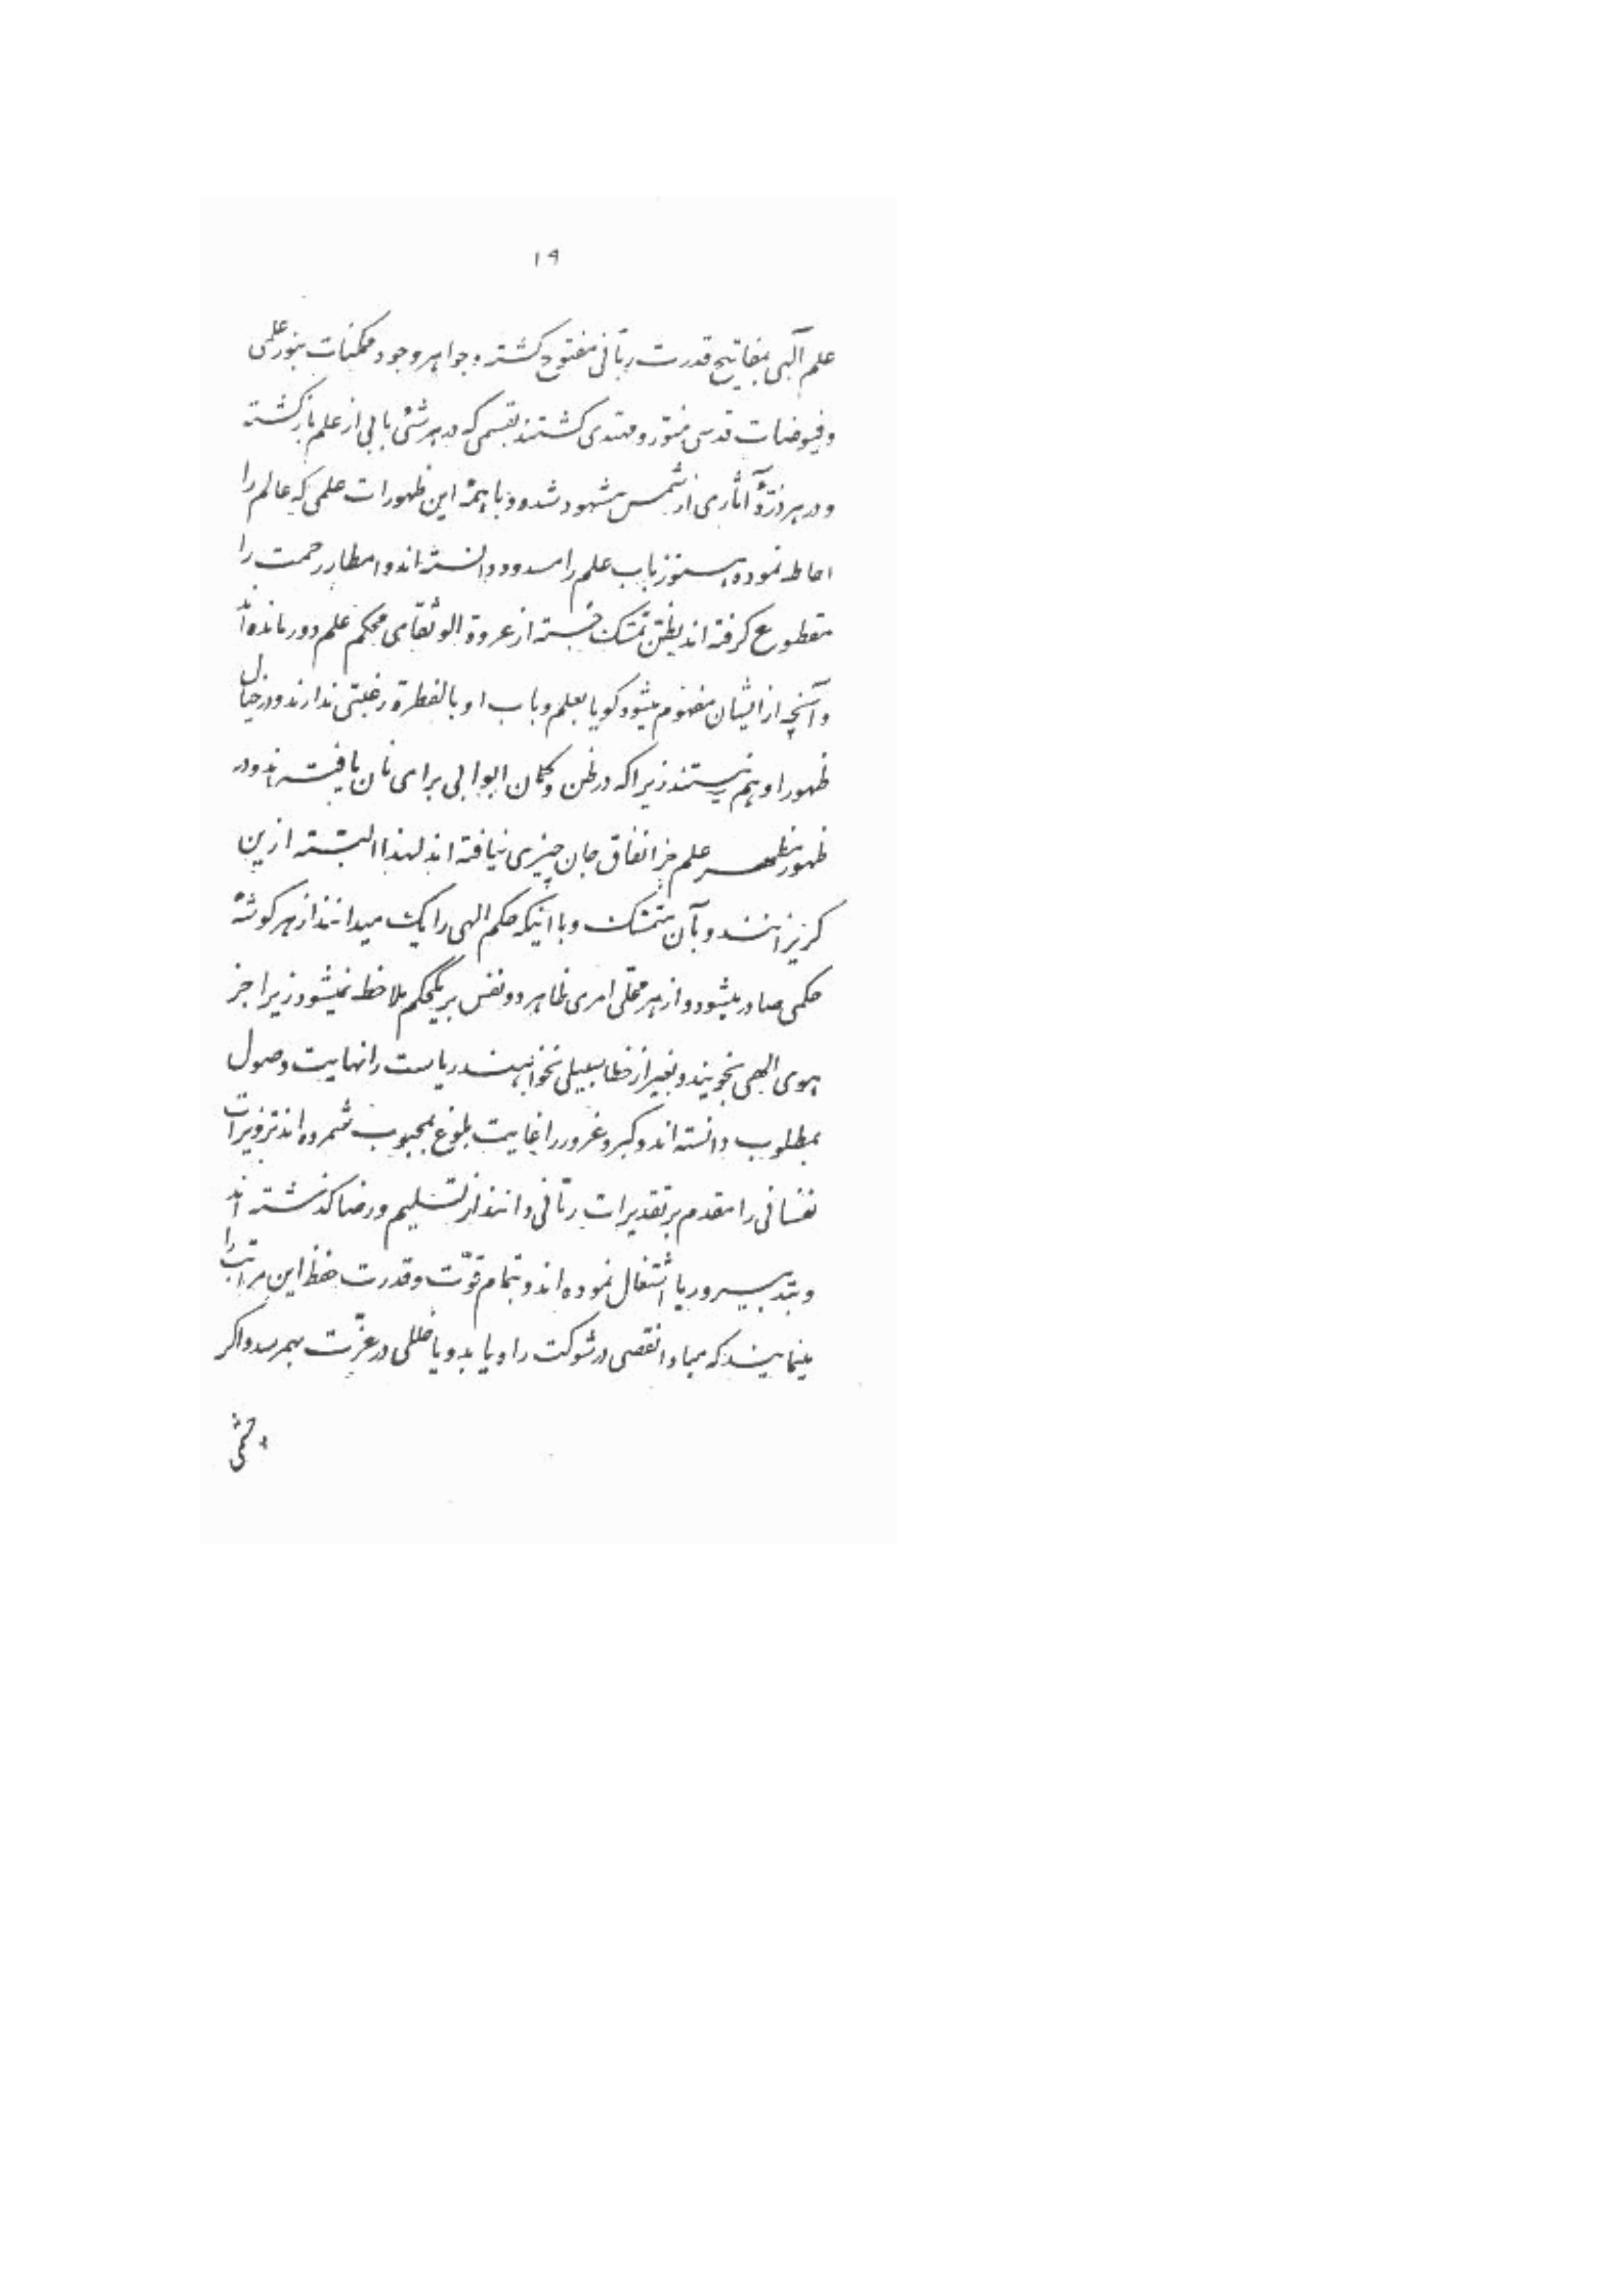 ۱۹
علم الهی بمفاتیح قدرت ربّانی مفتوح گشته و جواهر وجود ممکنات بنور علمی
و فیوضات قدسی منوّر و مهتدی گشتند بقسمی که در هر شئ بابی از علم باز گشته
و در هر ذرّهٴ آثاری از شمس مشهود شده و با همهٴ این ظهورات علمی که عالم را
احاطه نموده هنوز باب علم را مسدود دانسته‌اند و امطار رحمت را
مقطوع گرفته‌اند بظنّ تمسّک جسته از عروة الوثقای محکم علم دور مانده‌اند
و آنچه از ایشان مفهوم میشود گویا بعلم و باب او بالفطرة رغبتی ندارند و در خیال
ظهور او هم نیستند زیرا که در ظن و گمان ابوابی برای نان یافته‌اند و در
ظهور مظهر علم جز انفاق جان چیزی نیافته‌اند لهذا البتّه ازین
گریزانند و بآن متمسّک و با اینکه حکم الهی را یک میدانند از هر گوشهٴ
حکمی صادر میشود و از هر محلّی امری ظاهر دو نفس بر یکحکم ملاحظه نمیشود زیرا جز
هوی الهی نجویند و بغیر از خطا سبیلی نخواهند ریاست را نهایت وصول
بمطلوب دانسته‌اند و کبر و غرور را غایت بلوغ بمحبوب شمرده‌اند تزویرات
نفسانی را مقدم بر تقدیرات ربّانی دانند از تسلیم و رضا گذشته‌اند
و بتدبیر و ریا اشتغال نموده‌اند و بتمام قوّت و قدرت حفظ این مراتب را
مینمایند که مبادا نقصی در شوکت راه یابد و یا خللی در عزّت بهمرسد و اگر
چشمی